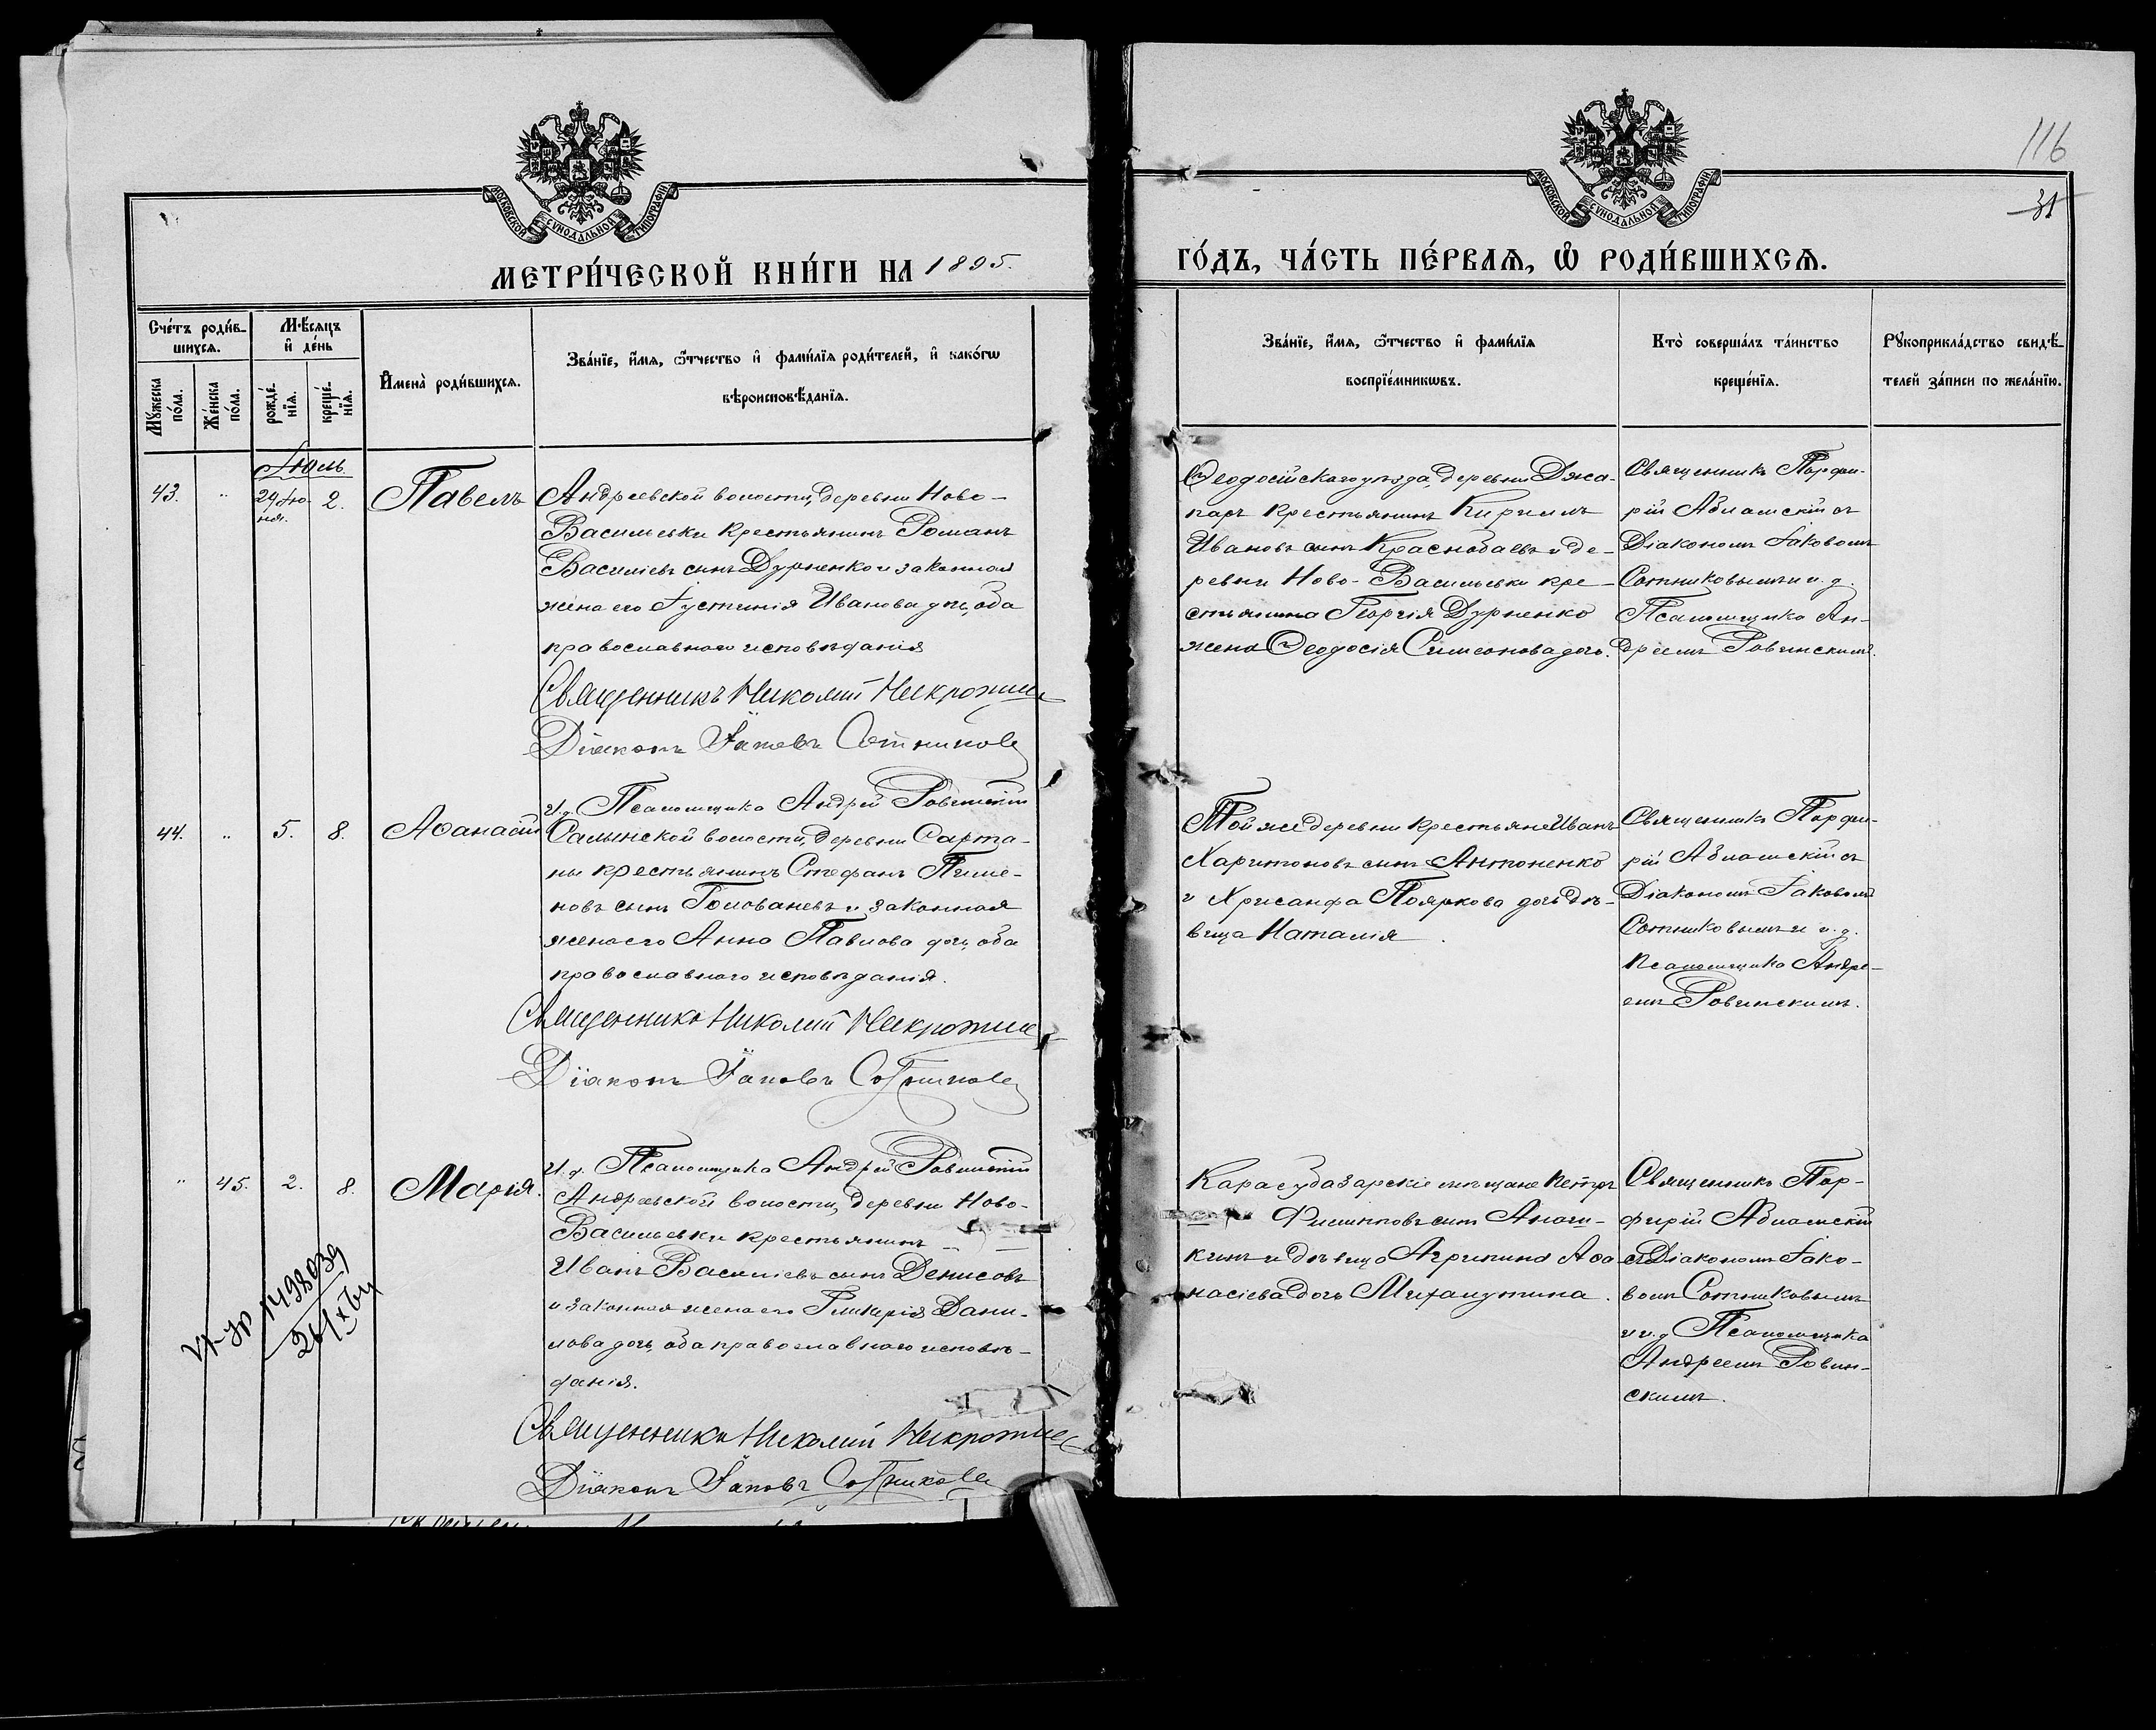 116
31
МОСКОВСКОЙ СѴНОДАЛЬНОЙ ТИПОГРАФІИ
МОСКОВСКОЙ СѴНОДАЛЬНОЙ ТИПОГРАФІИ
МЕТРИ́ЧЕСКОЙ КНИ́ГИ НА 1895.
ГО́ДЪ, ЧА́СТЬ ПЕ́РВАѦ, Ѽ РОДИ́ВШИХСѦ.
Сче́тъ роди́в-
шихсѧ.
Мѣ́сѧцъ
и҆ де́нь
Мꙋ́жеска
по́ла.
Же́нска
по́ла.
рожде́-
нїѧ.
креще́-
нїѧ.
И҆мена̀ роди́вшихсѧ.
Зва́нїе, и҆́мѧ, ѻ҆́тчество и҆ фами́лїѧ роди́телей, и҆ како́гѡ
вѣроисповѣ́данїѧ.
Зва́нїе, и҆́мѧ, ѻ҆́тчество и҆ фами́лїѧ
воспрїе́мникѡвъ.
Кто̀ соверша́лъ та́инство
креще́нїѧ.
Рꙋкоприкла́дство свидѣ́-
телей за́писи по жела́нїю.
Іюль.
43.
"
29 Ію-
ня.
2.
Павелъ
Андреевской волости, деревни Ново-
Васильевки крестьянинъ Романъ
Василіевъ сынъ Дурненко и законная
жена его Іустинія Иванова дочь, оба
православнаго исповѣданія
Священникъ Николай
Діаконъ Іаковъ Сотниковъ
И. д. Псаломщика Андрей Ровинскій
Ѳеодосійскаго уѣзда, деревни Джа-
паръ крестьянинъ Кириллъ
Ивановъ сынъ Краснобаевъ и де-
ревни Ново-Васильевки кре-
стьянина Георгія Дурненко
жена Ѳеодосія Симеонова дочь.
Священникъ Порфи-
рій Абламскій съ
Діакономъ Іаковомъ
Сотниковымъ и и. д.
Псаломщика Ан-
дреемъ Ровинскимъ.
44.
"
5.
8.
Аѳанасій
Салынской волости, деревни Сарта-
ны крестьянинъ Стефанъ Пиме-
новъ сынъ Голованевъ и законная
жена его Анна Павлова дочь, оба
православнаго исповѣданія.
Священникъ Николай
Діаконъ Іаковъ Сотниковъ
И. д. Псаломщика Андрей Ровинскій
Той же деревни крестьяне Иванъ
Харитоновъ сынъ Антоненко
и Хрисанфа Пояркова дочь дѣ-
вица Наталія.
Священникъ Порфи-
рій Абламскій съ
Діакономъ Іаковомъ
Сотниковымъ и и. д.
Псаломщика Андре-
емъ Ровинскимъ.
"
45.
2.
8.
Марія.
Андреевской волости, деревни Ново-
Васильевки крестьянинъ
Иванъ Василіевъ сынъ Денисовъ
и законная жена его Гликерія Дани-
лова дочь, оба православнаго исповѣ-
данія.
Священникъ Николай
Діаконъ Іаковъ Сотниковъ
Карасубазарскіе мѣщане Петръ
Филипповъ сынъ
и дѣвица Агрипина Аѳа-
насіева дочь
Священникъ Пор-
фирій Абламскій
съ Діакономъ Іако-
вомъ Сотниковымъ
и и. д. Псаломщика
Андреемъ Ровин-
скимъ.